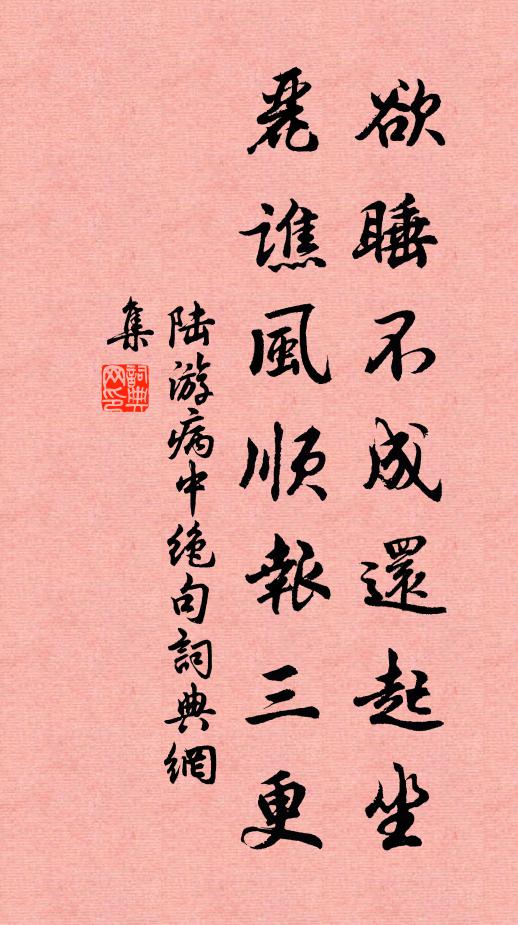 欲睡不成還起坐
麗譙風順報三更
陸游病中絶句詞典網
集
詞典
网印